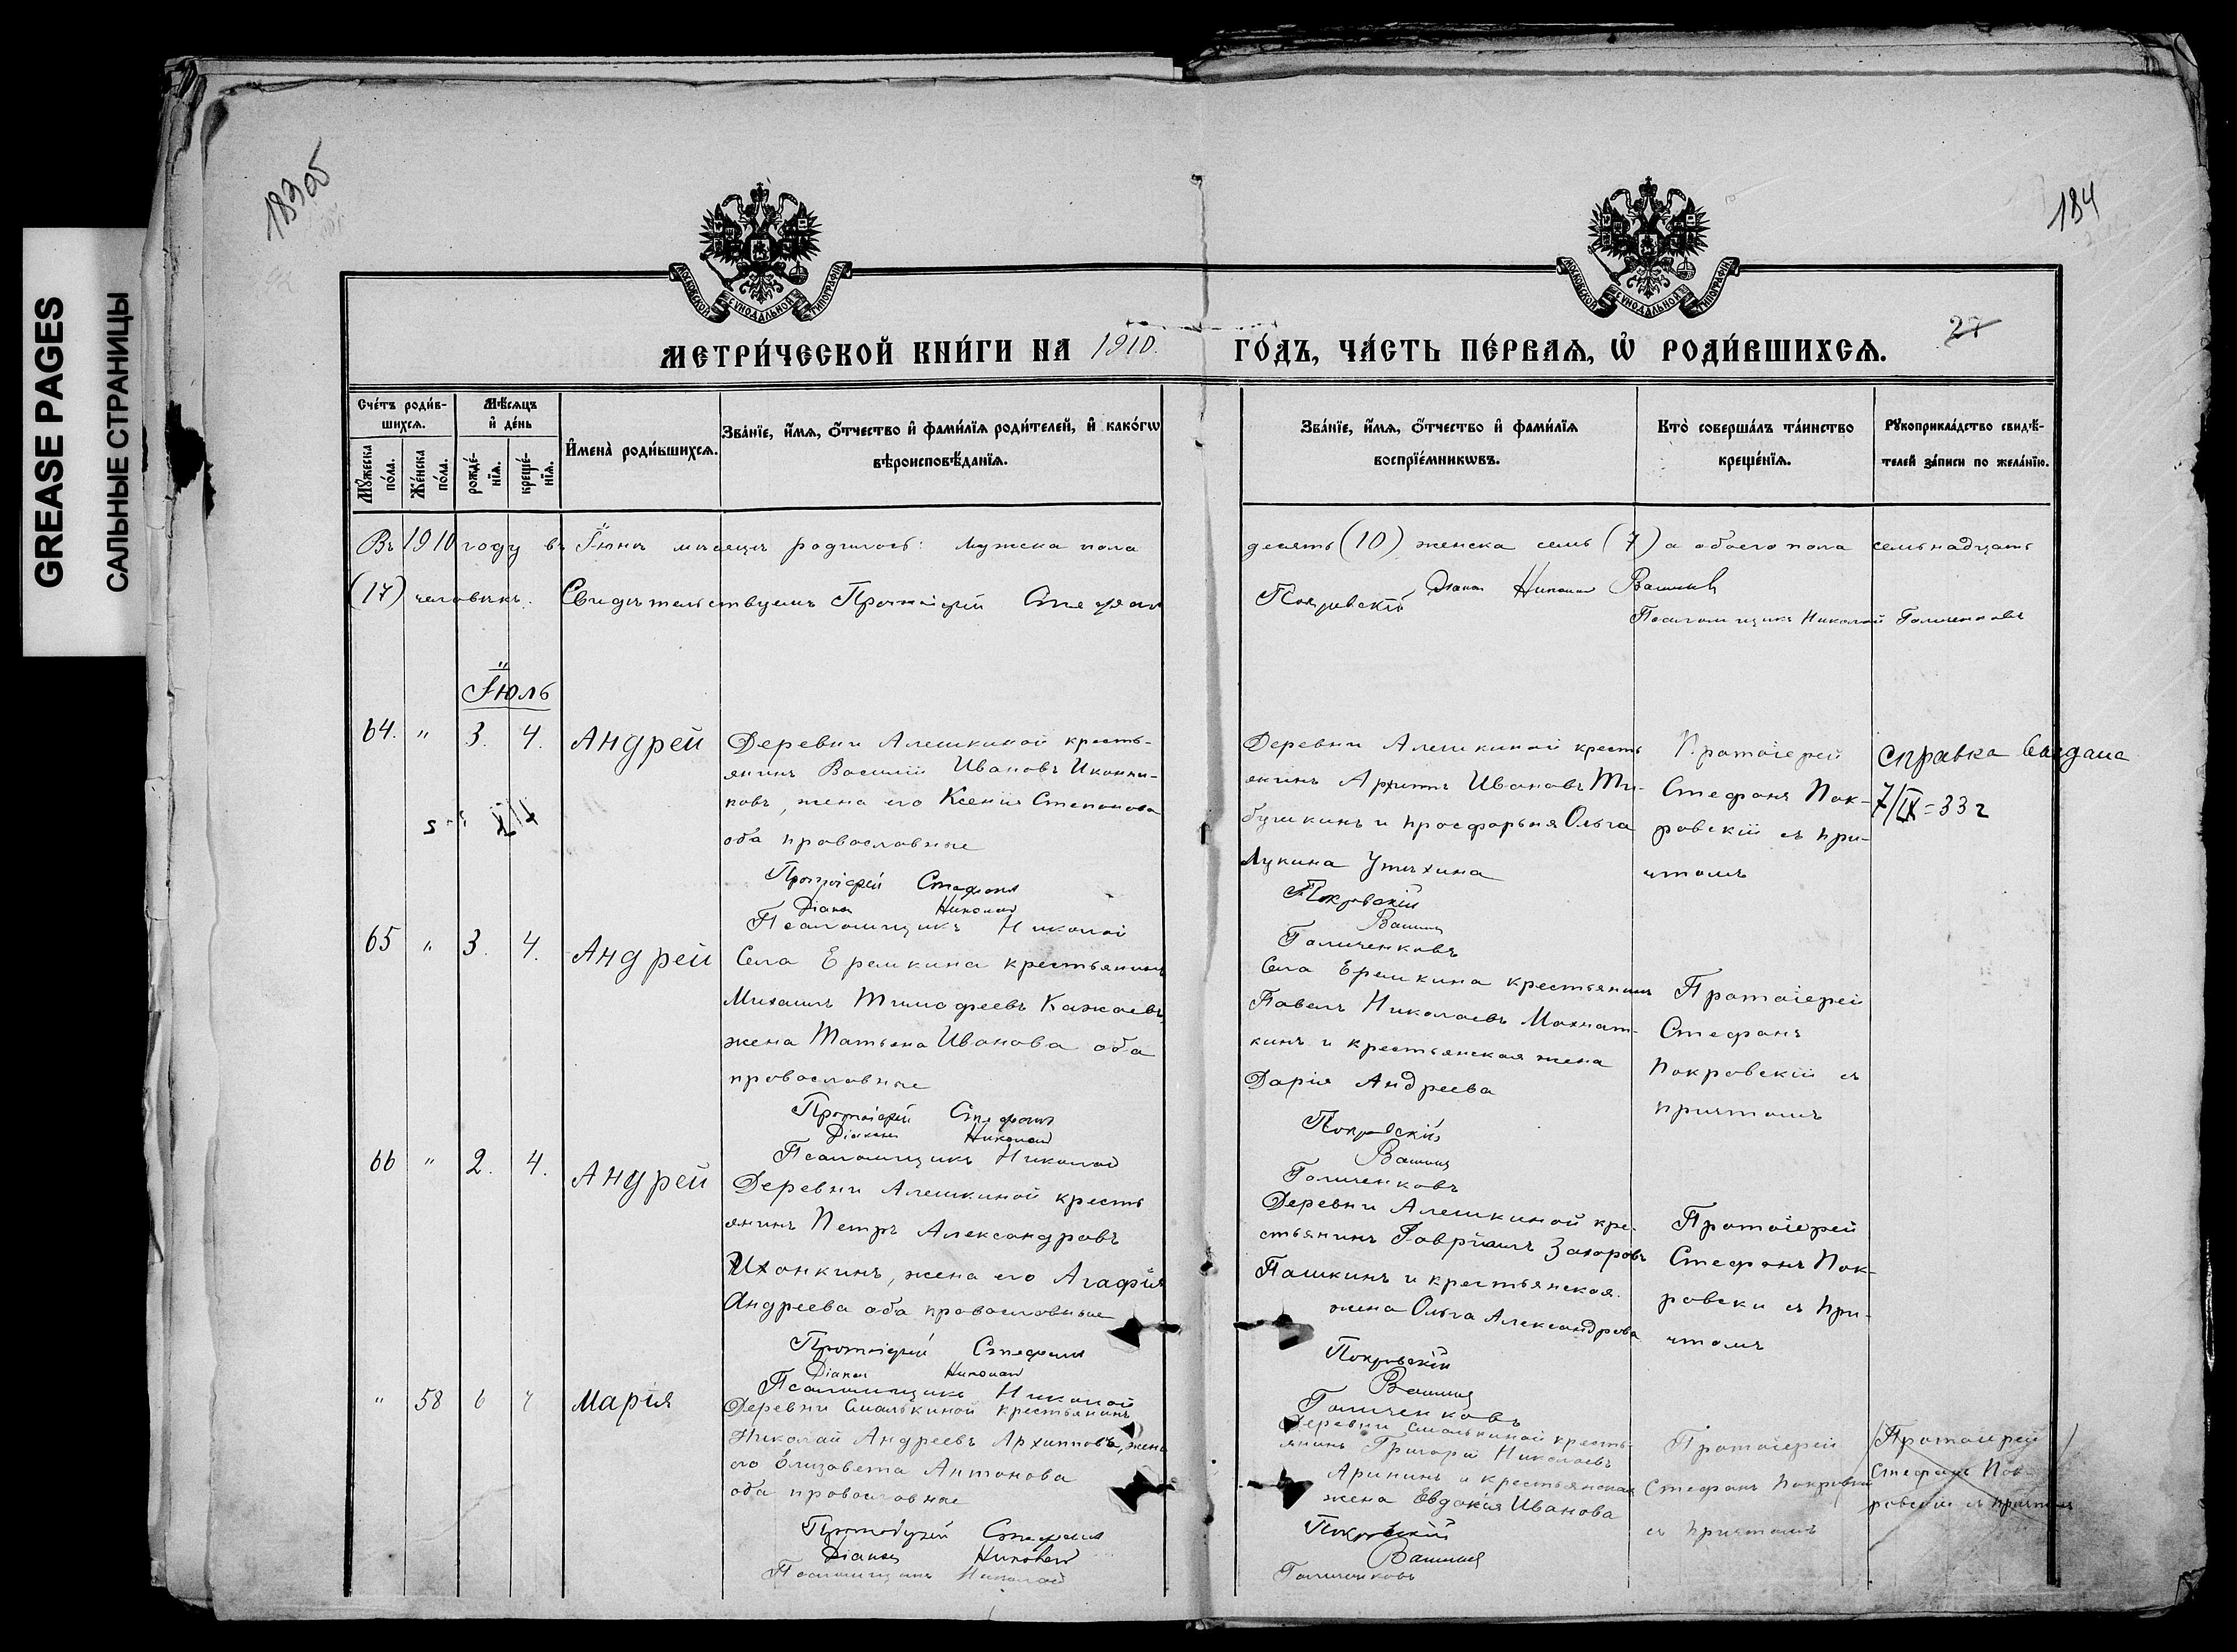 GREASE PAGES
САЛЬНЫЕ СТРАНИЦЫ
183об
184
27
МОСКОВСКОЙ СУНОДАЛЬНОЙ ТИПОГРАФІИ.
МОСКОВСКОЙ СУНОДАЛЬНОЙ ТИПОГРАФІИ.
МЕТРИ́ЧЕСКОЙ КНИ́ГИ НА 1910. ГО́ДЪ, ЧА́СТЬ ПЕ́РВАЯ, Ѡ РОДИ́ВШИХСЯ.
Сче́тъ роди́в-
шихся.
Мѣ́сяцъ
и҆ де́нь
Мꙋ́жеска
по́ла.
Же́нска
по́ла.
рожде́-
нїя.
креще́-
нїя.
И҆мена̀ роди́вшихся.
Зва́нїе, и҆́мя, ѻ҆́тчество и҆ фами́лїя роди́телей, и҆ како́гѡ
вѣроисповѣ́данїя.
Зва́нїе, и҆́мя, ѻ҆́тчество и҆ фами́лїя
воспрїе́мникѡвъ.
Кто̀ соверша́лъ та́инство
креще́нїя.
Рꙋкоприкла́дство свидѣ́-
телей за́писи по жела́нїю.
Въ 1910 году въ Іюнѣ мѣсяцѣ родилось: мужска пола десять (10) женска семь (7) а обоего пола семьнадцать
(17) человѣкъ. Свидѣтельствуемъ Протоіерей Стефанъ Покровскій Діаконъ Николай
Псаломщикъ Николай Голиченковъ
Іюль
64. " 3. 4. Андрей
Деревни Алешкиной кресть-
янинъ Василій Ивановъ Иконни-
ковъ, жена его Ксенія Степанова
оба православные
Протоіерей Стефанъ
Діаконъ Николай
Псаломщикъ Николай
Деревни Алешкиной кресть
янинъ Архипъ Ивановъ Ти-
бушкинъ и просфорня Ольга
Лукина Утѣхина
Покровскій
Голиченковъ
Протоіерей
Стефанъ Пок-
ровскій съ при-
чтомъ
справка выдана
7/IX=33 г
65 " 3. 4. Андрей
Села Еремкина крестьянинъ
Михаилъ Тимофеевъ Кажаевъ,
жена Татьяна Иванова оба
православные
Протоіерей Стефанъ
Діаконъ Николай
Псаломщикъ Николай
Села Еремкина крестьянинъ
Павелъ Николаевъ Мохнат-
кинъ и крестьянская жена
Дарія Андреева
Покровскій
Голиченковъ
Протоіерей
Стефанъ
Покровскій съ
причтомъ
66 " 2. 4. Андрей
Деревни Алешкиной кресть
янинъ Петръ Александровъ
Ихонкинъ, жена его Агафія
Андреева оба православные
Протоіерей Стефанъ
Діаконъ Николай
Псаломщикъ Николай
Деревни Алешкиной кре-
стьянинъ Гавріилъ Захаровъ
Пашкинъ и крестьянская
жена Ольга Александрова
Покровскій
Голиченковъ
Протоіерей
Стефанъ Пок-
ровски съ при-
чтомъ
" 58 6 Марія
Деревни Смалькиной крестьянинъ
Николай Андреевъ Архиповъ, жена
его Елизавета Антонова
оба православные
Протоіерей Стефанъ
Діаконъ Николай
Псаломщикъ Николай
Деревни Смалькиной кресть-
янинъ Григорій Николаевъ
Аринъ и крестьянская
жена Евдокія Иванова
Покровскій
Голиченковъ
Протоіерей
Стефанъ Покровскій
съ причтомъ
Протоіерей
Стефанъ Пок-
ровскій съ причтомъ